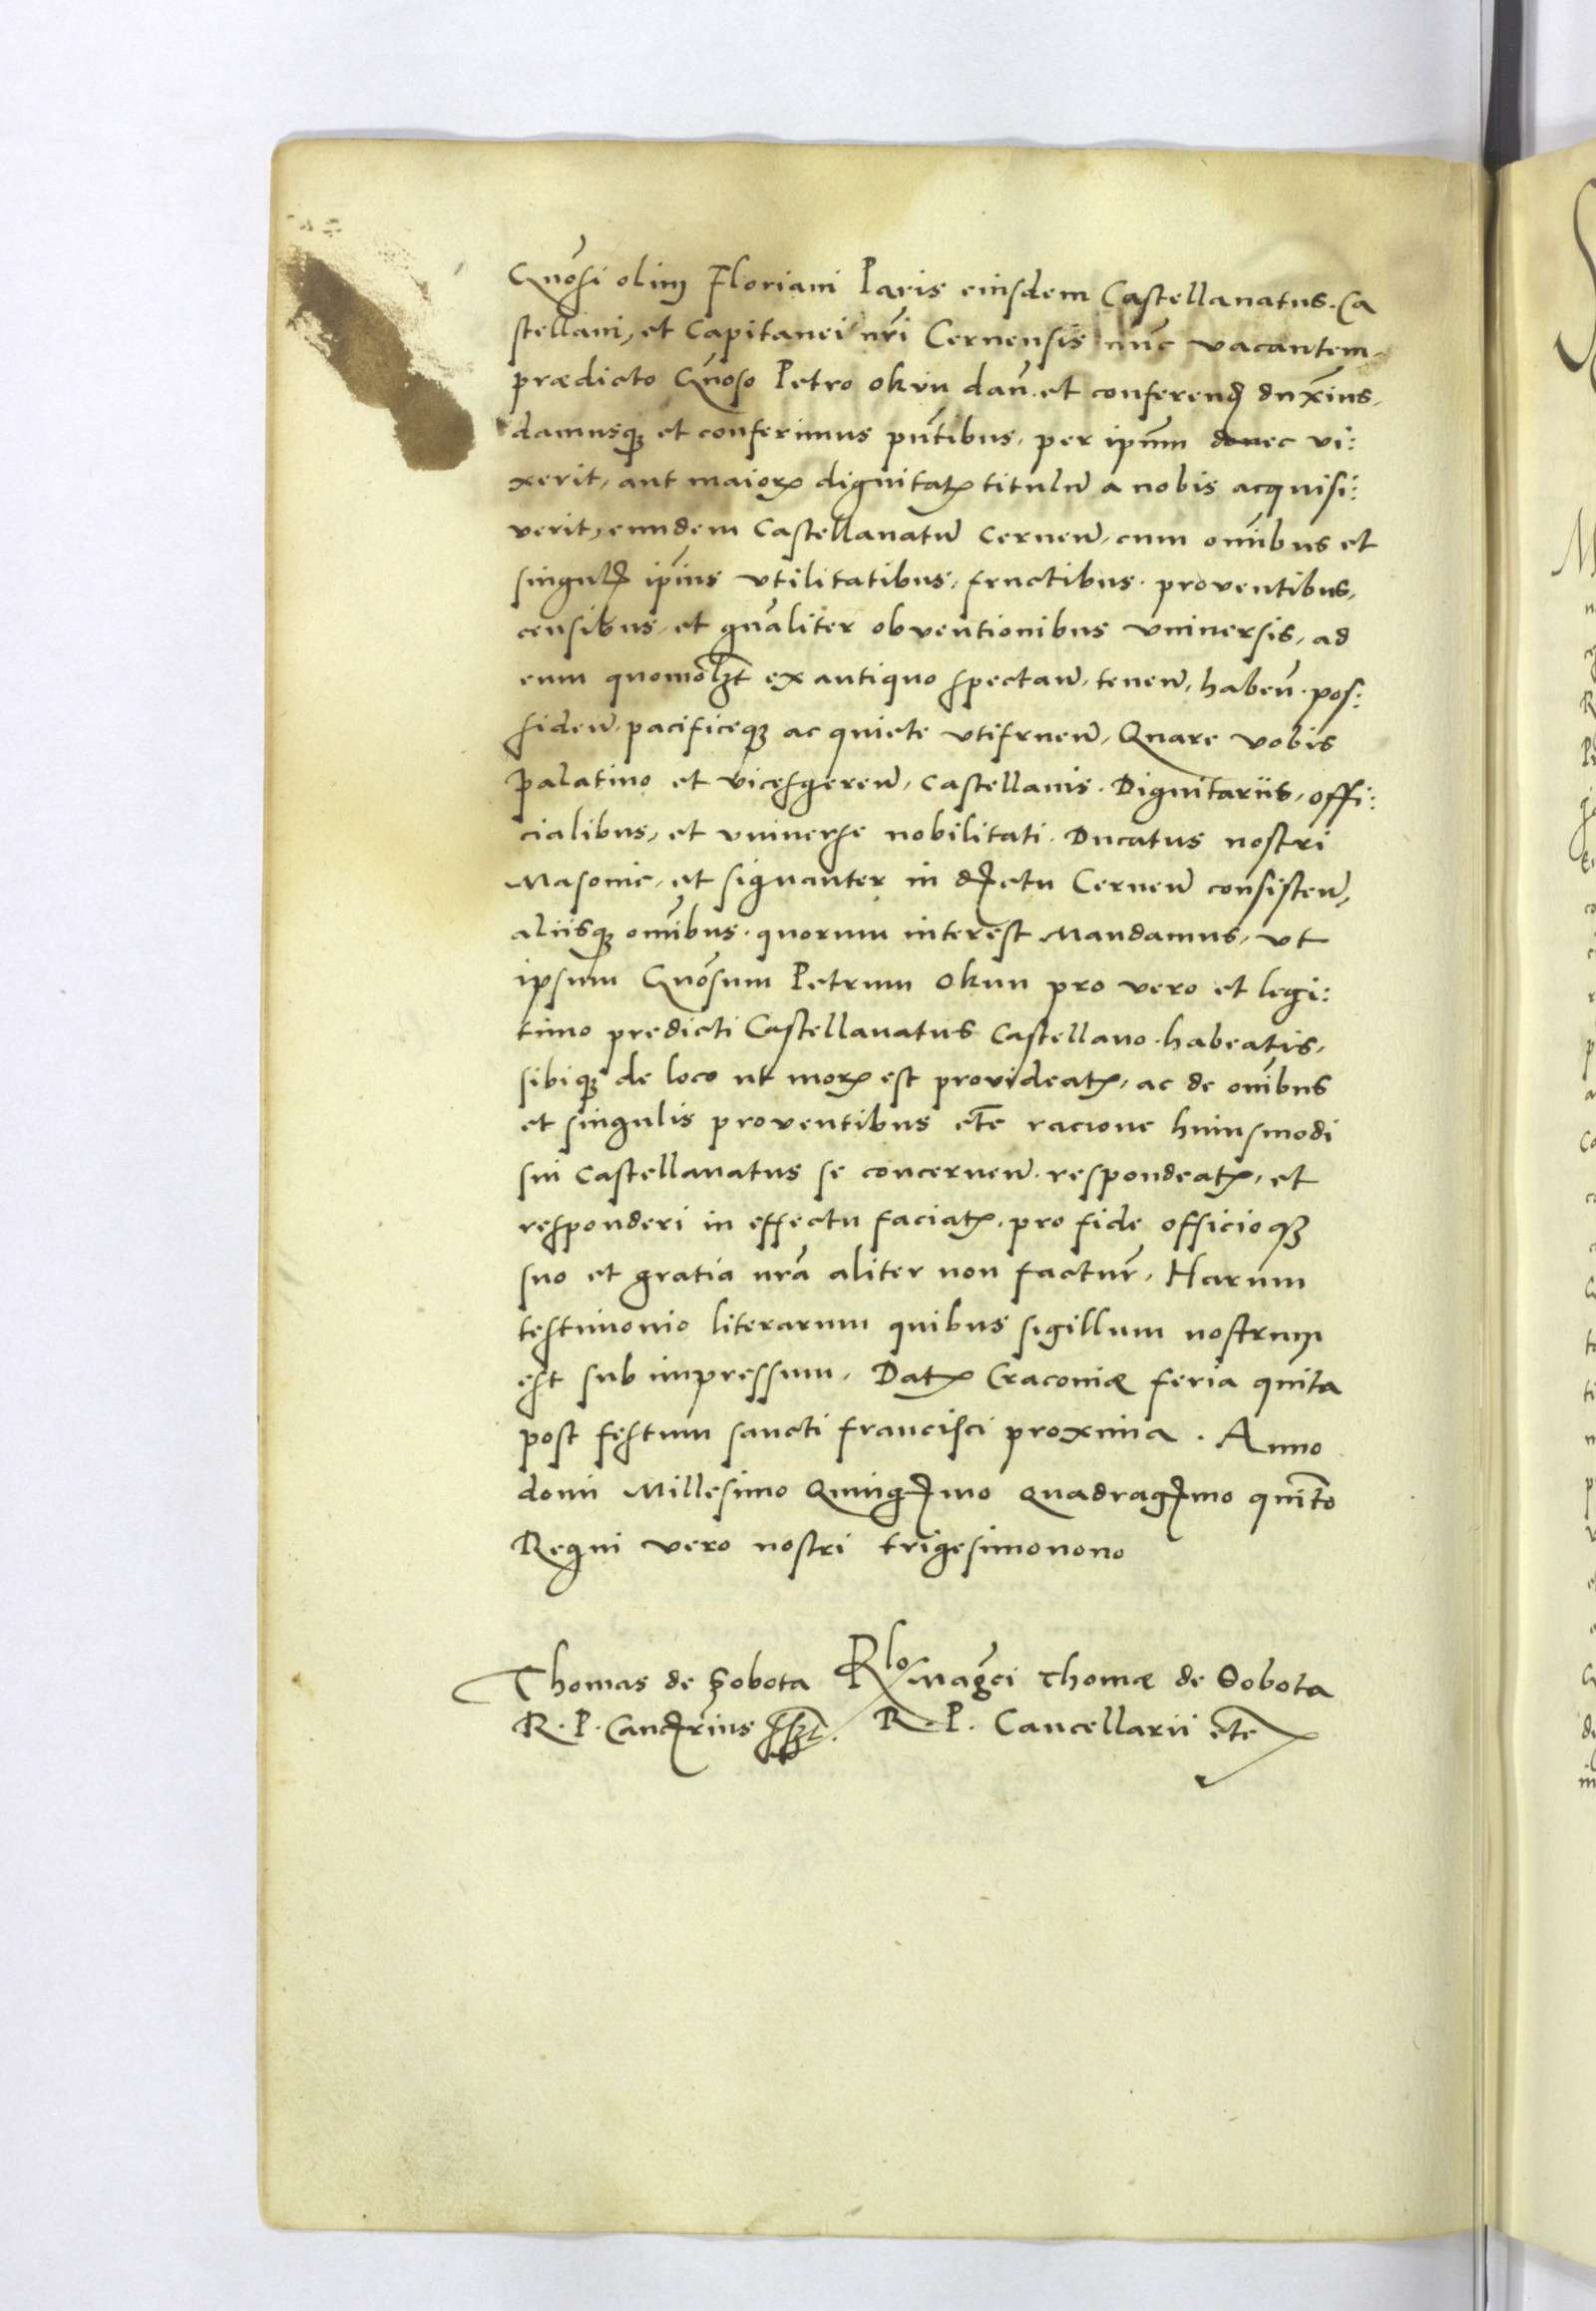 Gnōsi olim Floriani Paris eiusdem Castellanatus. Ca
stellani, et Capitanei nr̄i Cernensis nūc vacantem,
prædicto Gnōso Petro Okun dan̄. et conferend̄ dux̄ius,
damusqꝫ et conferimus pn̄tibus, per ipsum donec vi:
xerit, aut maioris dignitatis titulū a nobis acquisi:
verit, eundem Castellanatū Cernen̄, cum om̄ibus et
singul̄ ip̄ius vtilitatibus, fructibus. proventibus,
censibus, et gn̄aliter obventionibus vniuersis, ad
eum quomōlꝫt ex antiquo spectan̄, tenen̄, haben̄. pos:
siden̄. pacificeqꝫ ac quiete vtifruen̄, Quare vobis
Palatino et vicesgeren̄, Castellanis. Dignitariis, offi:
cialibus, et vniuerse nobilitati. Ducatus nostri
Masouie, et signanter in dꝭctu Cernen̄ consisten̄,
aliisqꝫ om̄ibus. quorum interest Mandamus, vt
ipsum Gnōsum Petrum Okun pro vero et legi:
timo predicti Castellanatus Castellano. habeatis,
sibiqꝫ de loco ut moris est provideatis, ac de om̄ibus
et singulis proventibus etc̄ racione huiusmodi
sui Castellanatus se concernen̄. respondeatis, et
responderi in effectu faciatis. pro fide officioqꝫ
suo et gratia nr̄a aliter non factur̄, Harum
testimonio literarum quibus sigillum nostrum
est sub impressum. Datis Cracouiæ feria quīta
post festum sancti francisci proxima. Anno
domi Millesimo Quingꝭmo Quadragꝭmo quīto
Regni vero nostri trigesimonono
Thomas de Sobota
R. P. Canꝭrius sszt.
Rlo Mag̃ci Thomæ de Sobota
R. P. Cancellarii etc̄